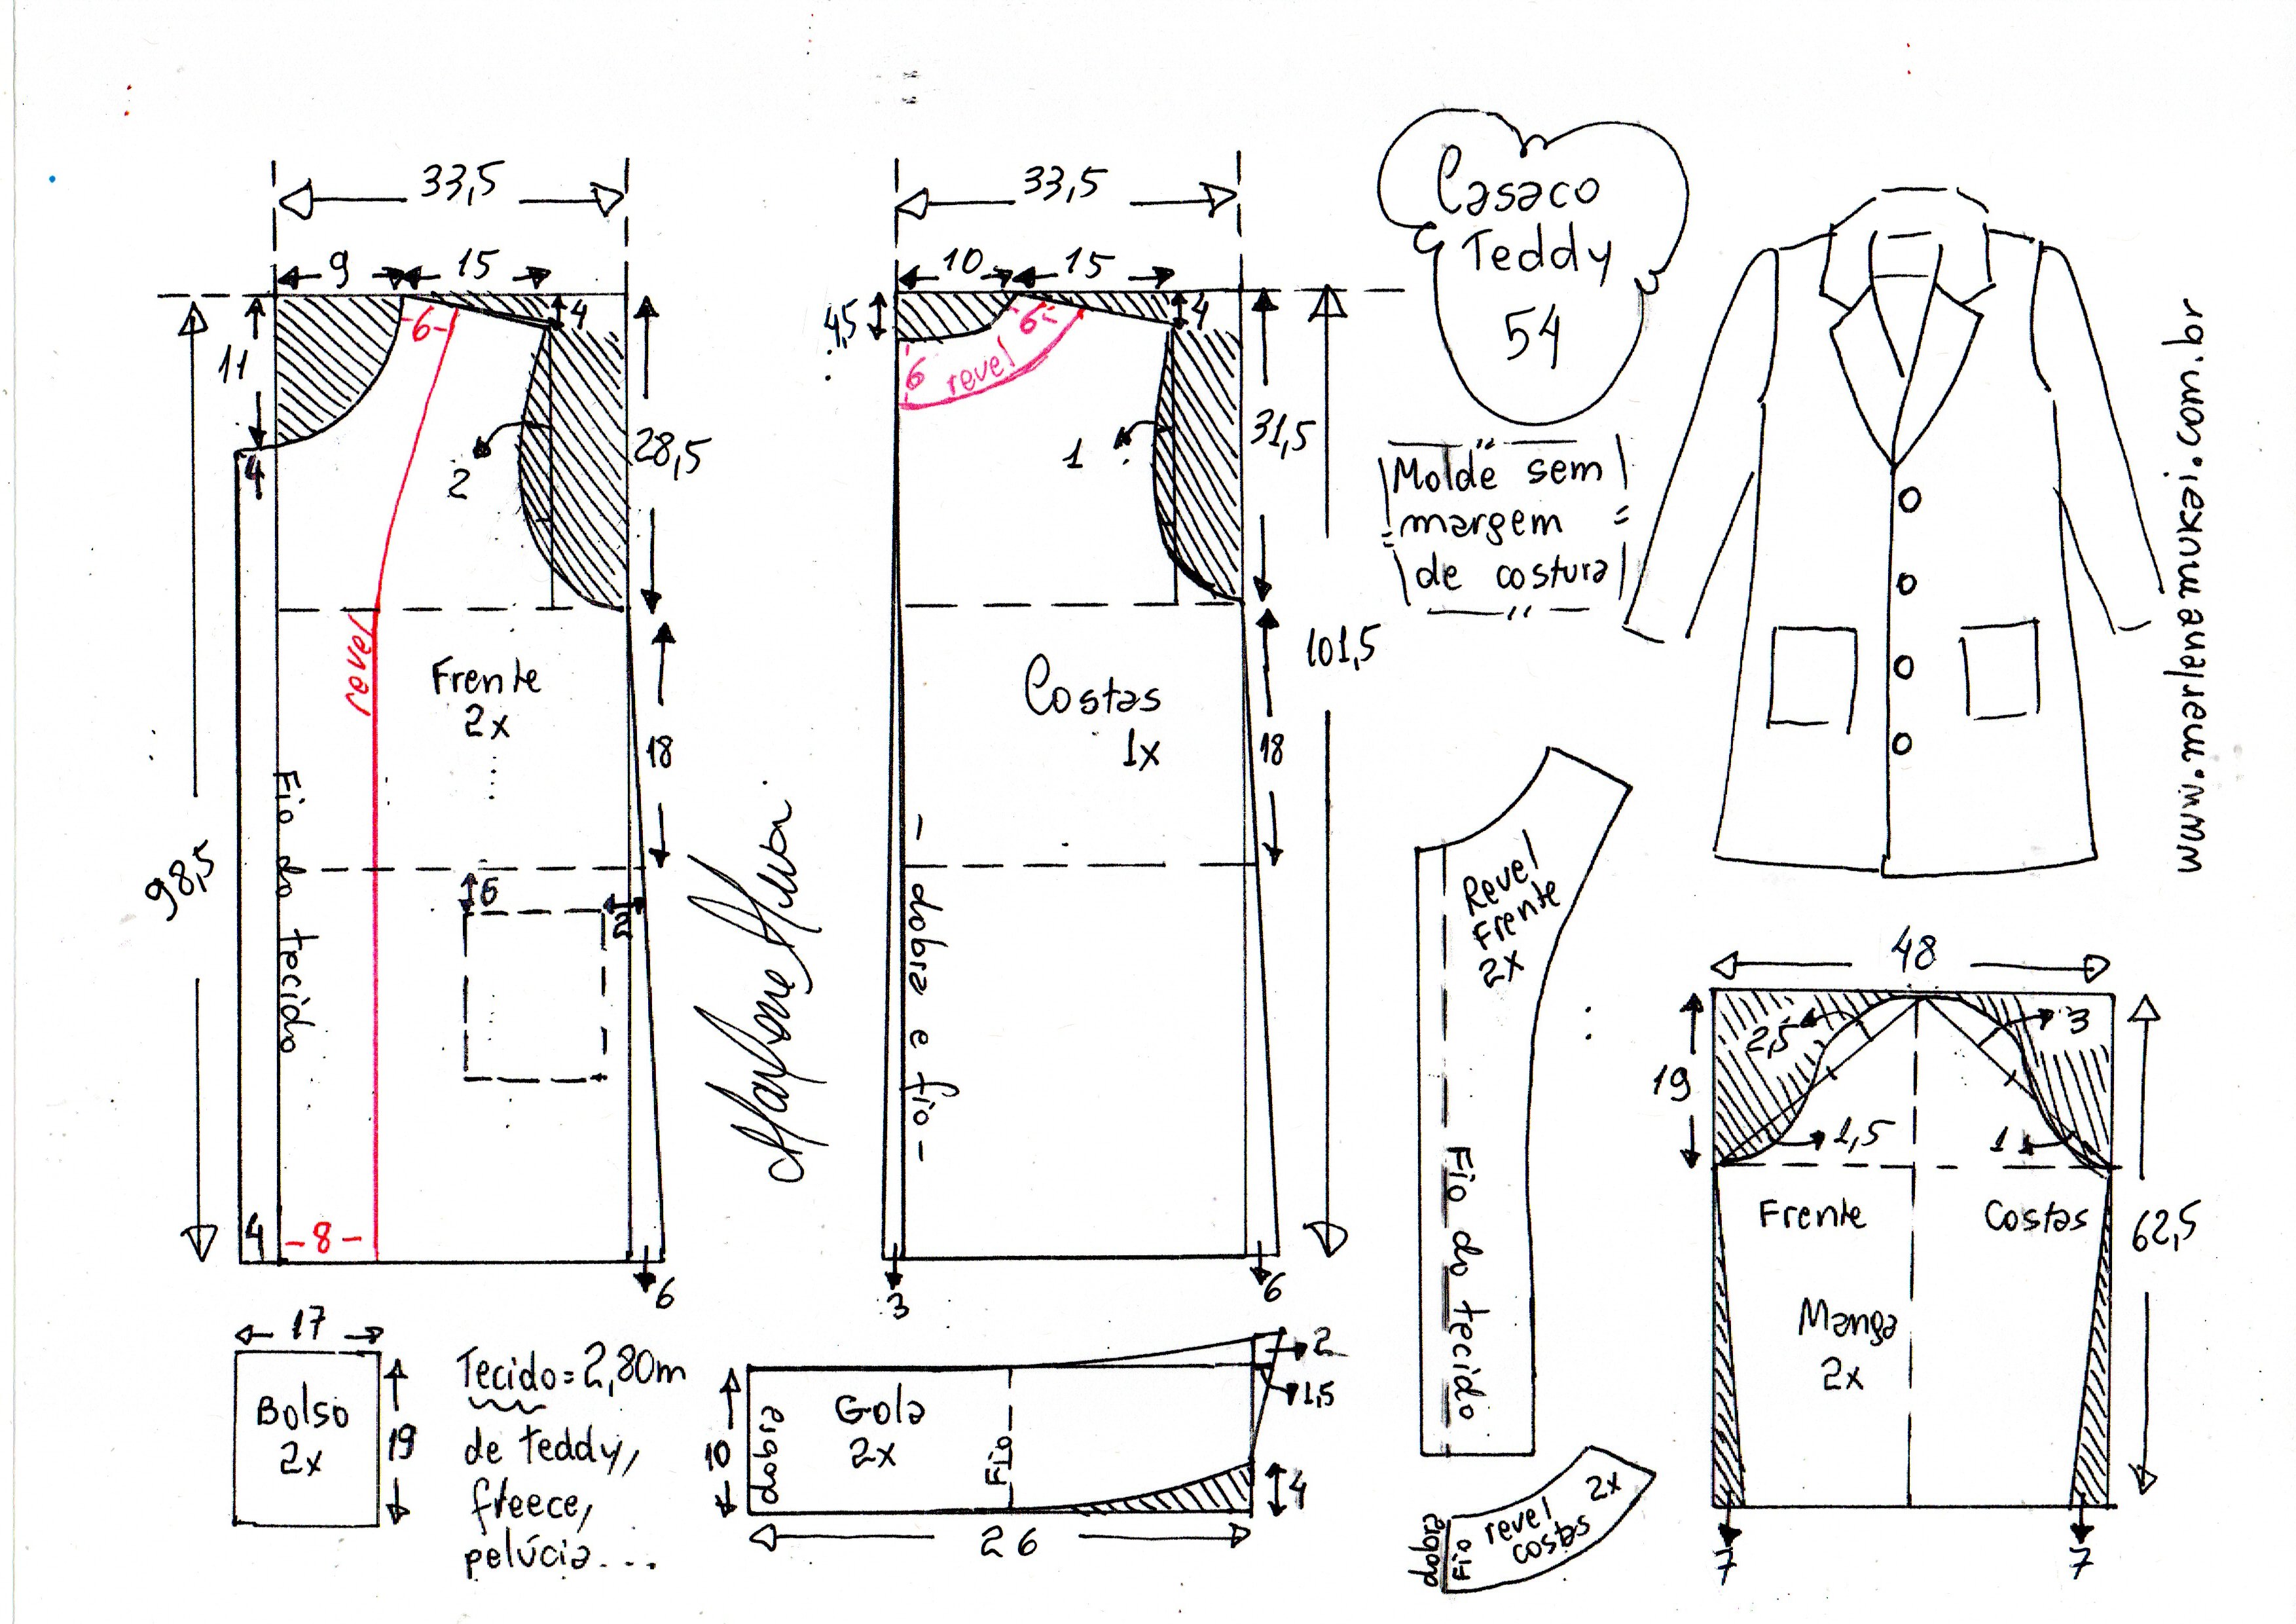 33,5
9
15
11
4
6
4
2
28,5
revel
Frente
2x
18
Fio do tecido
98,5
6
2
4
8
6
33,5
10
15
4,5
4
6
6
revel
1
31,5
Costas
1x
18
101,5
- dobra e fio -
3
6
Casaco
Teddy
54
Molde sem
margem
de costura
www.marlenemukai.com.br
Marlene Mukai
Revel
Frente
2x
Fio do tecido
48
2,5
3
19
1,5
1
Frente
Costas
62,5
Manga
2x
7
7
17
Bolso
2x
19
Tecido = 2,80m
de teddy,
freece,
pelúcia...
10
dobra
Gola
2x
Fio
2
1,5
4
26
dobra
Fio
revel
costas
2x